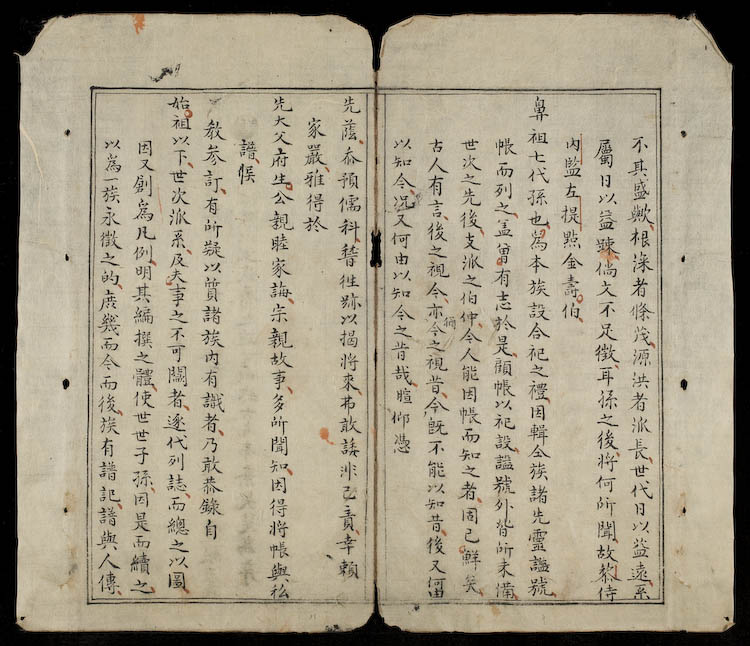 不其盛歟根深者條茂源洪者派長世代日以益遠系
屬日以益踈倘文不足徵耳孫之後將何所聞故黎侍
內監左提點金壽伯
鼻祖七代孫也為本族設合祀之禮因輯全族諸先靈謚號
帳而列之盖嘗有志於是顧帳以祀設謚號外皆所未備
世次之先後支派之伯仲今人能因帳而知之者固已鮮矣
古人有言後之視今亦猶今之視昔今旣不能以知昔後又何由
以知今况又何由以知今之昔哉暄仰憑
先蔭忝預儒科替徃跡以揭將來弗敢諉非己責幸賴
家嚴雅得於
先大父府生公親睦家誨宗親故事多所聞知因得將帳與私
譜俟
教參訂有所疑以質諸族內有識者乃敢恭錄自
始祖以下世次派系及夫事之不可闕者逐代列誌而總之以圖
因又創為凡例明其編撰之體使世世子孫因是而續之
以為一族永徵之的庶幾而今而後族有譜記譜與人傳